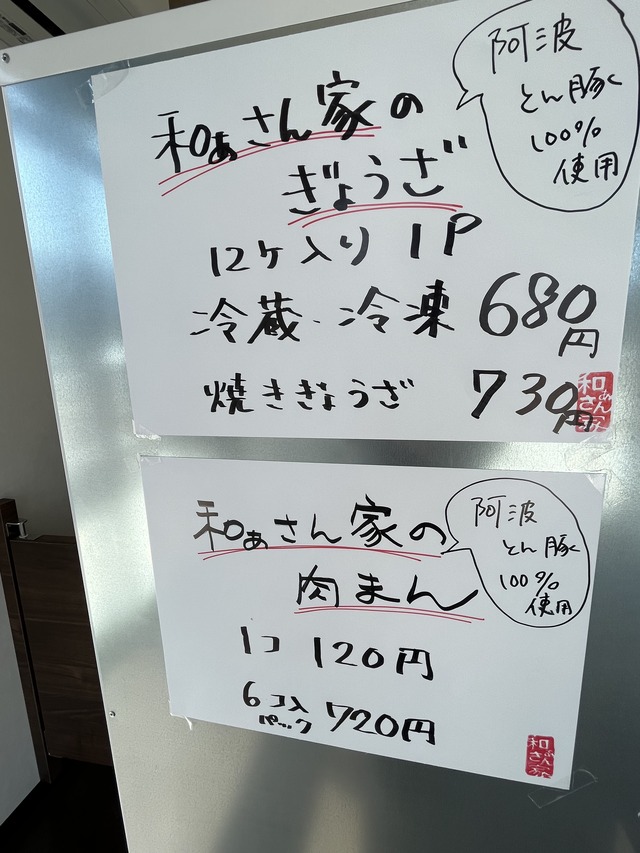 和ぁさん家の
ぎょうざ
阿波
とん豚
100%
使用
12ケ入り 1P
冷蔵・冷凍 680円
焼きぎょうざ 730円
和ぁさん家の
肉まん
阿波
とん豚
100%
使用
1コ 120円
6コ入パック 720円